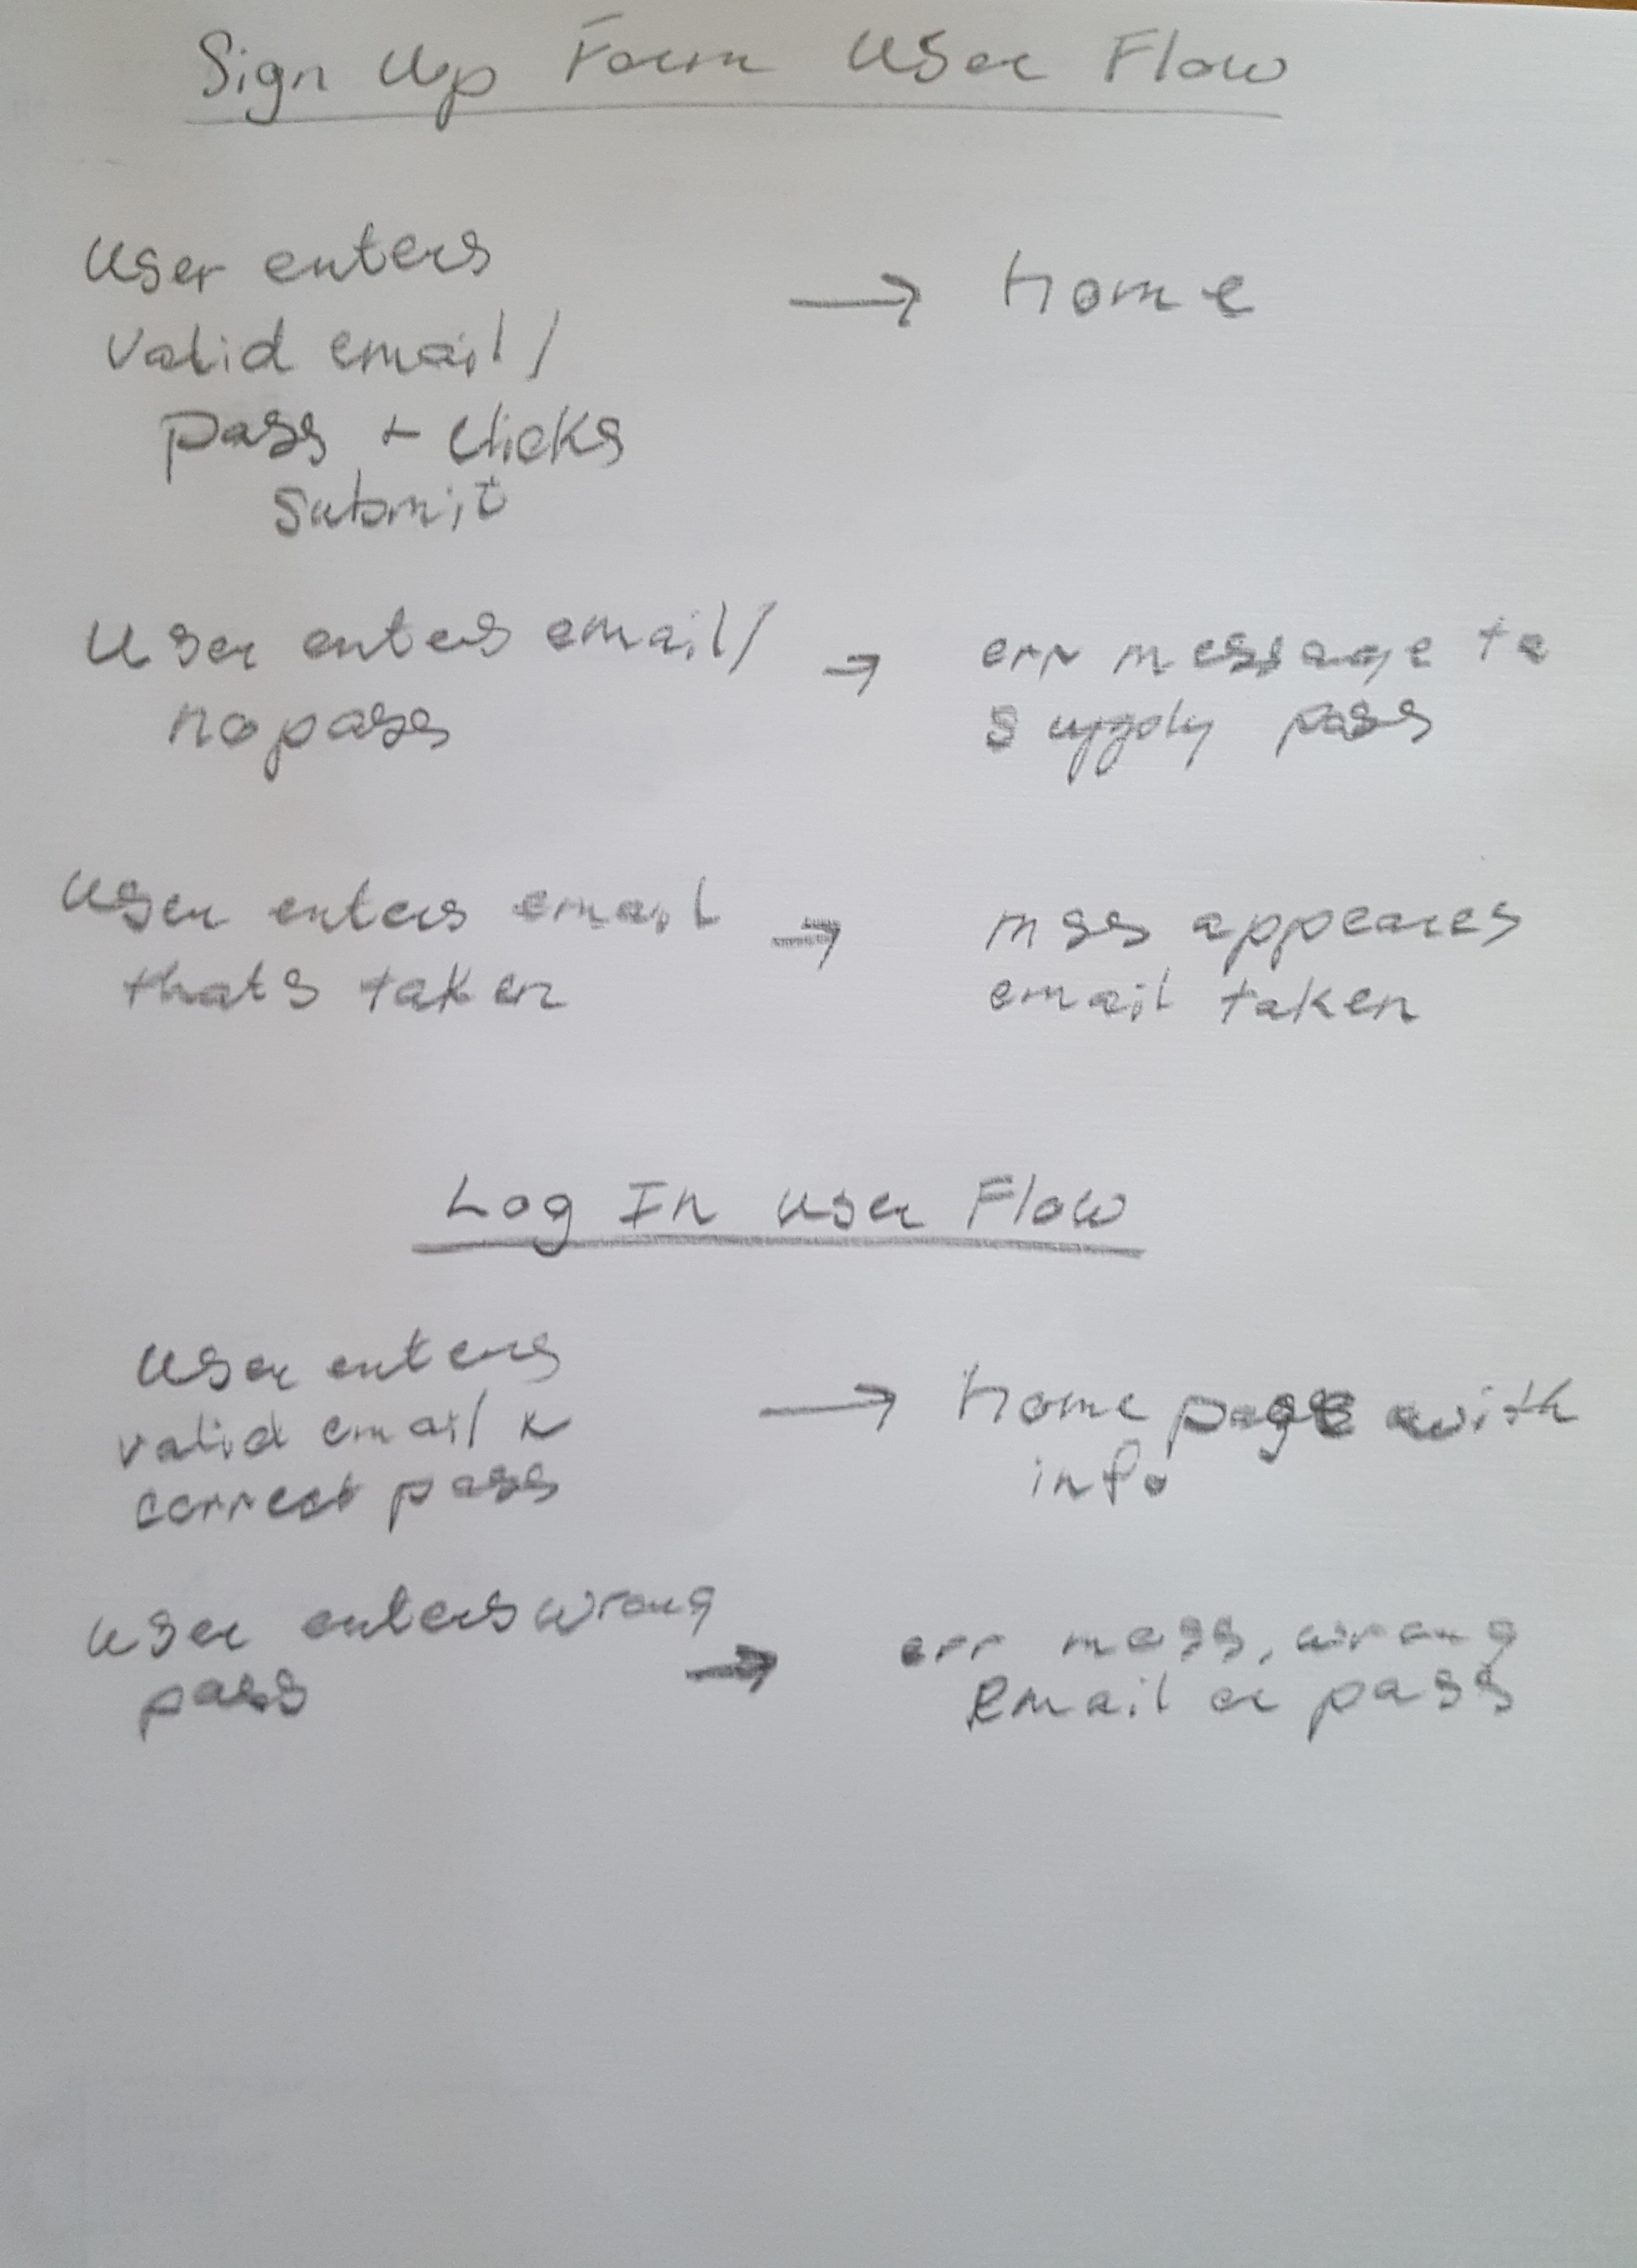 Sign Up Form User Flow
User enters
valid email/
pass + clicks
submit
→ home
User enters email/
no pass
→ err message to
supply pass
User enters email
thats taken
→ mss appeares
email taken
Log In User Flow
User enters
valid email &
correct pass
→ home page with
info
User enters wrong
pass
→ err mess, wrong
Email or pass